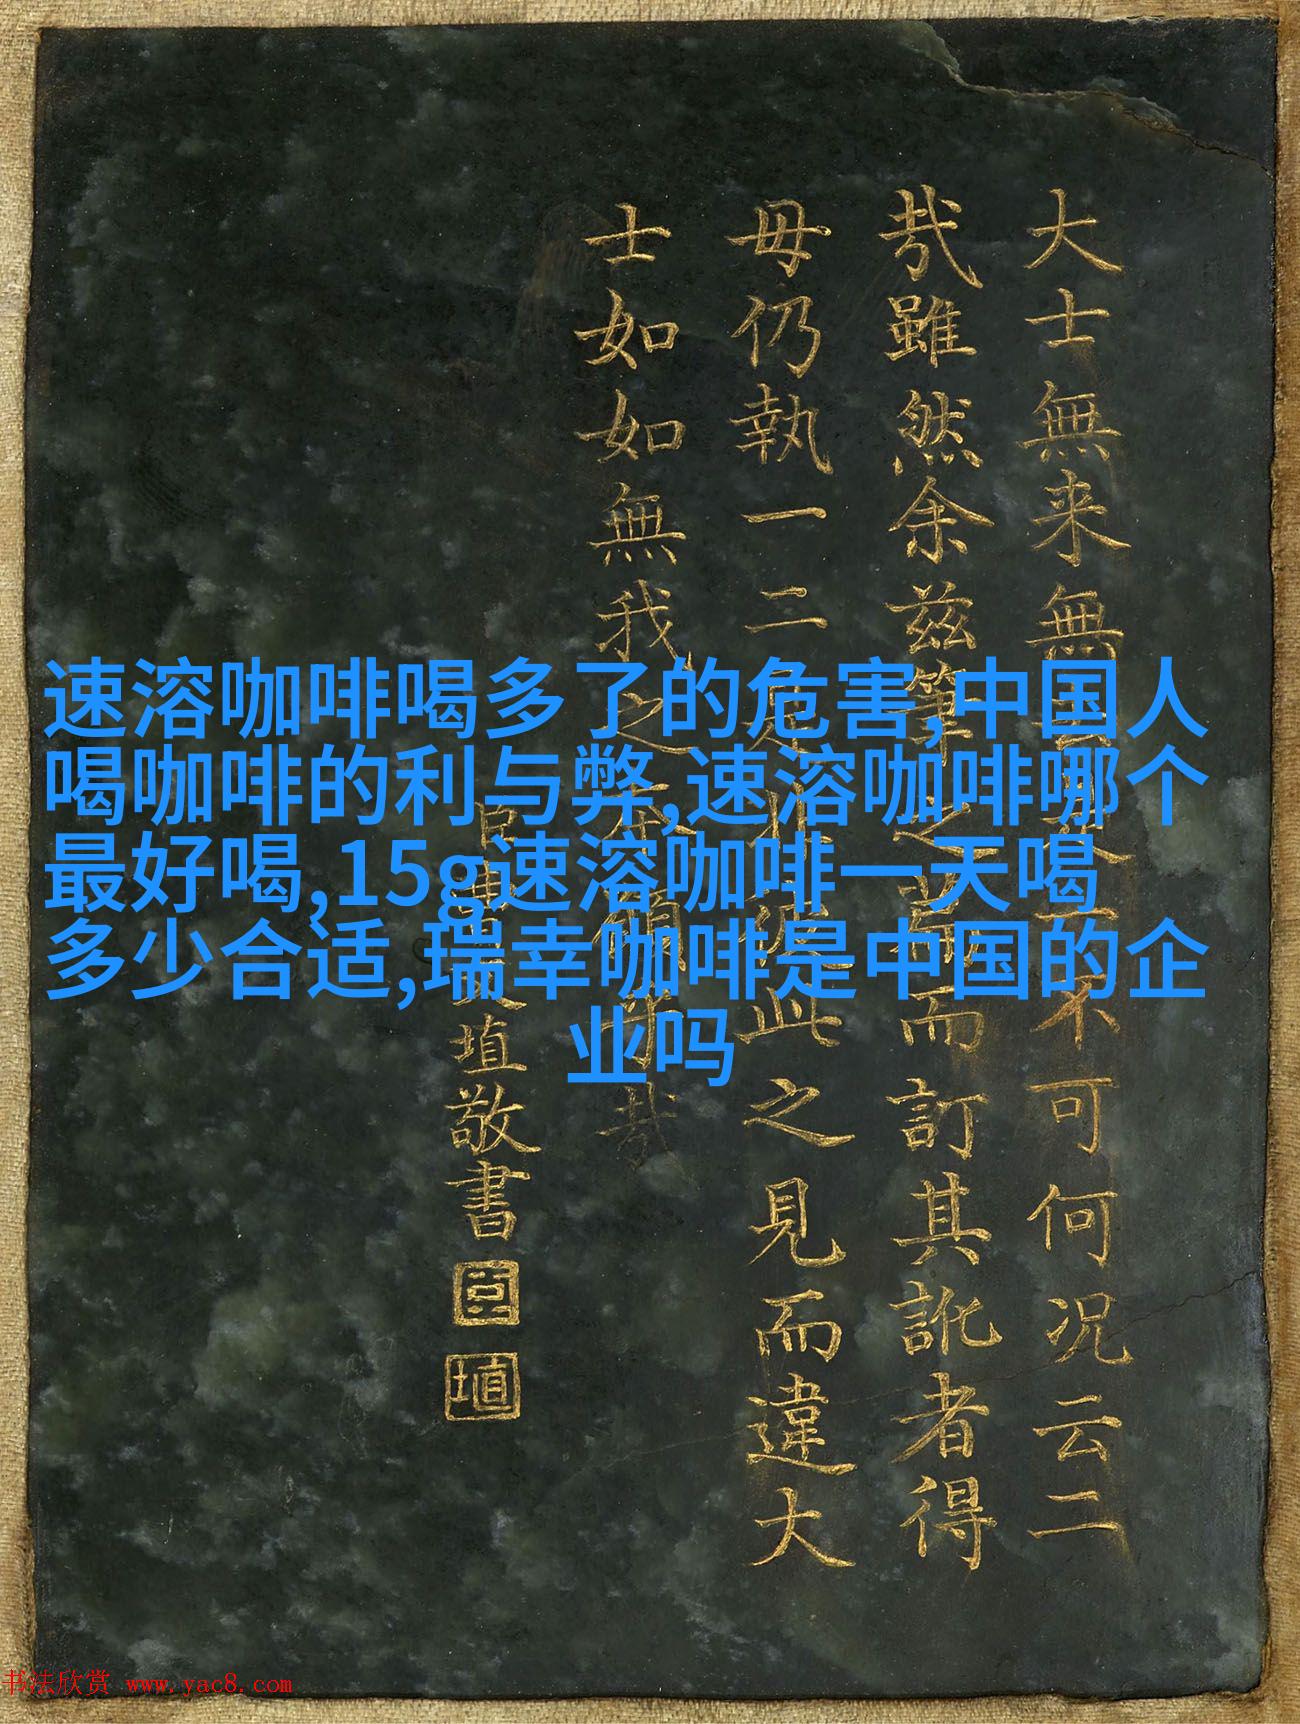 大士無来無去本不可何况云二
哉雖然余兹筆之書而訂其訛者得
毋仍執一二是非彼此之見而違大
士如如無我之本願乎哉
埴敬書
埴
速溶咖啡喝多了的危害,中国人
喝咖啡的利与弊,速溶咖啡哪个
最好喝,15g速溶咖啡一天喝
多少合适,瑞幸咖啡是中国的企
业吗
书法欣赏 www.yac8.com